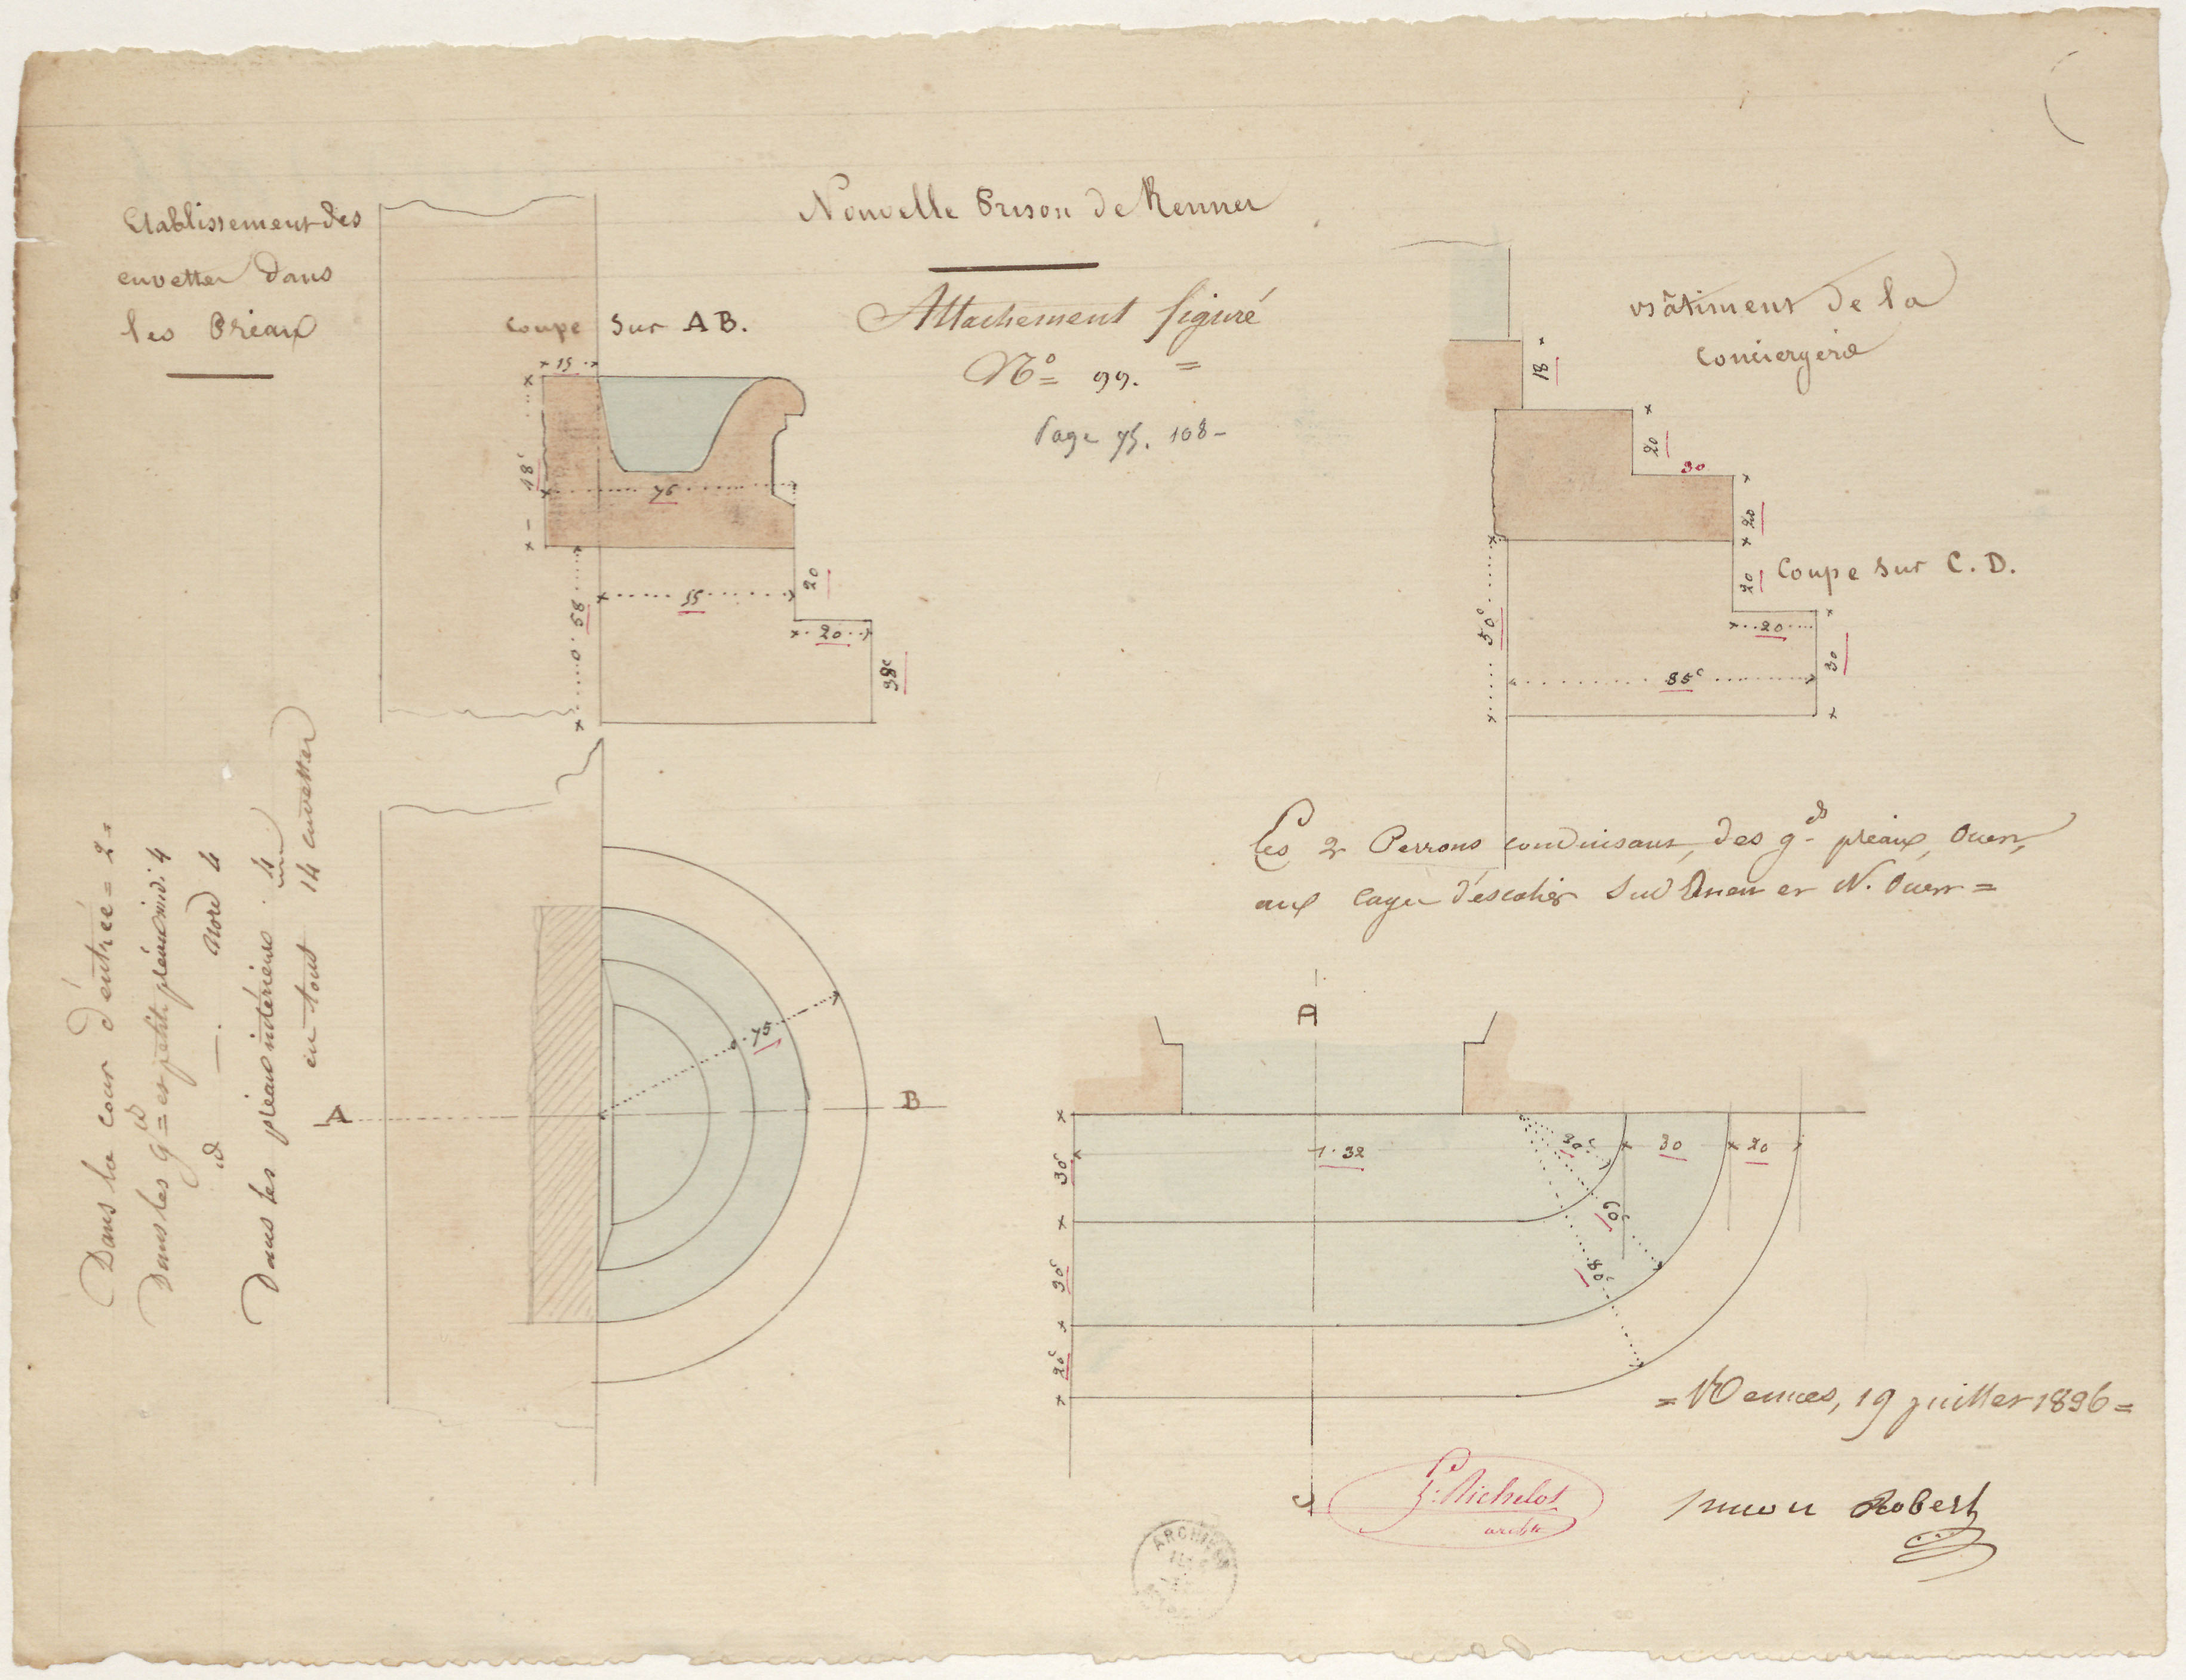 Nouvelle Prison de Rennes
Attachement figuré
Nº 99. =
Page 75. 108 -
Etablissement des
cuvettes dans
les Préaux
Coupe sur A B.
15
48ᶜ
76
0.58
55
20
20
38ᶜ
Bâtiment de la
Conciergerie
18
20
30
20
Coupe sur C. D.
20
20
50ᶜ
85ᶜ
30
Les 2 Perrons conduisant, des gᵈˢ préaux, Ouest,
aux cages d'escalier Sud Ouest et N. Ouest =
Dans la cour d'entrée = 2 =
Dans les gᵈˢ = et petits préaux midi. 4
id — . Nord 4
Dans les préaux intérieurs . 4
en tout 14 cuvettes
A
75
B
A
1.32
30ᶜ
30
20
60ᶜ
80ᶜ
30ᶜ
30ᶜ
20ᶜ
C
= Rennes, 19 juillet 1896 =
J. Richelot
archte
Simon Robert
ARCHIVES